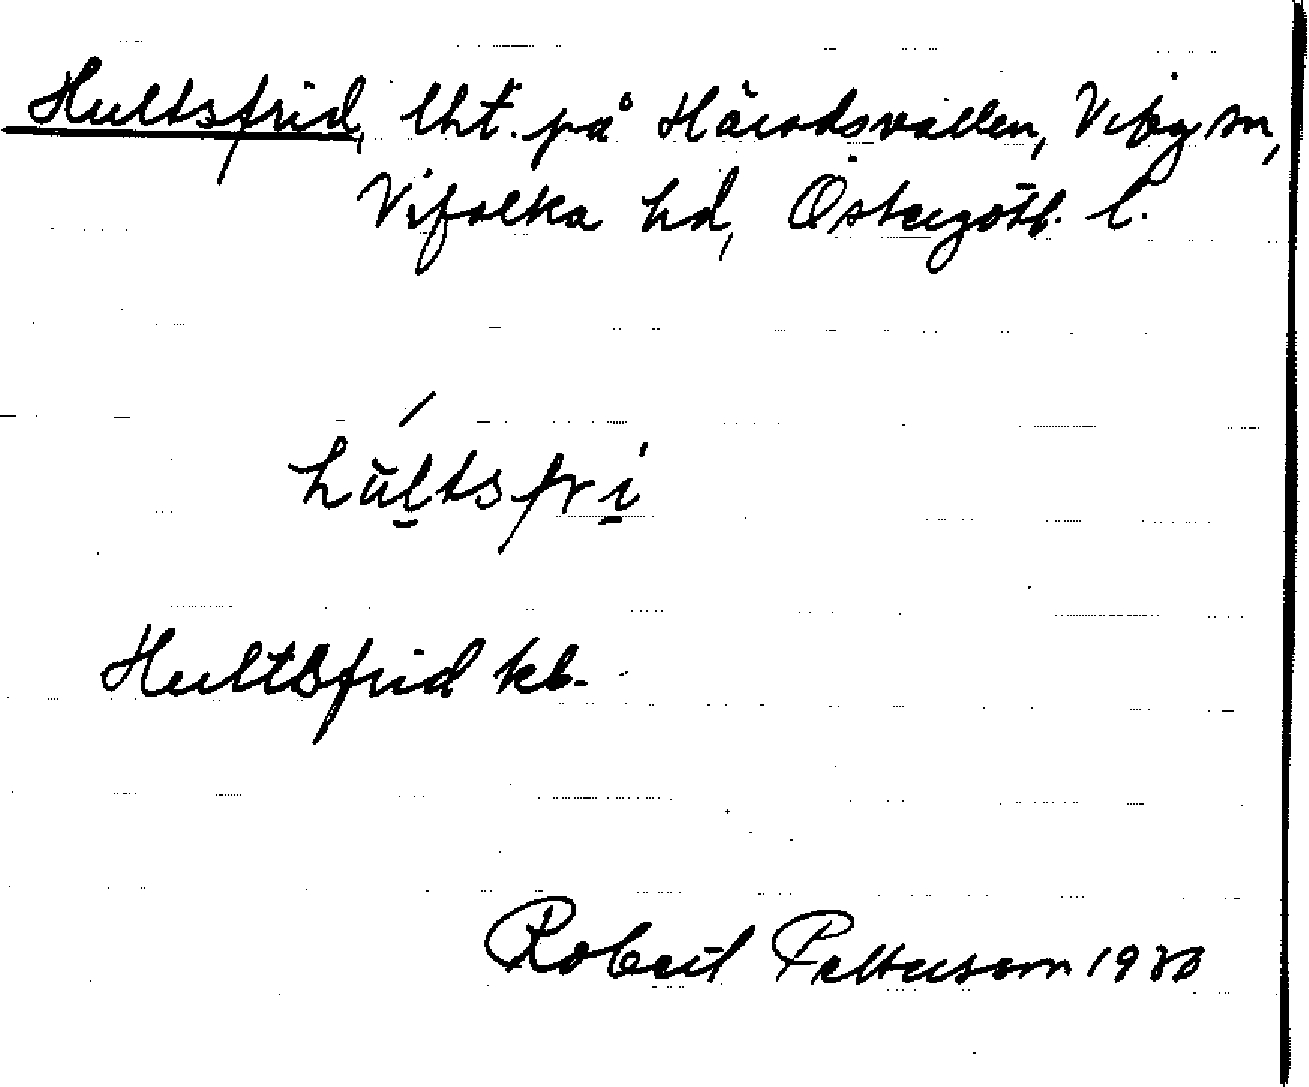 Hultsfrid, lht. på Häradsvallen, Viby sn,
Vifolka hd, Östergötl. l.
hu̇l̠tsfri̠
Hultsfrid kb.
Robert Petterson